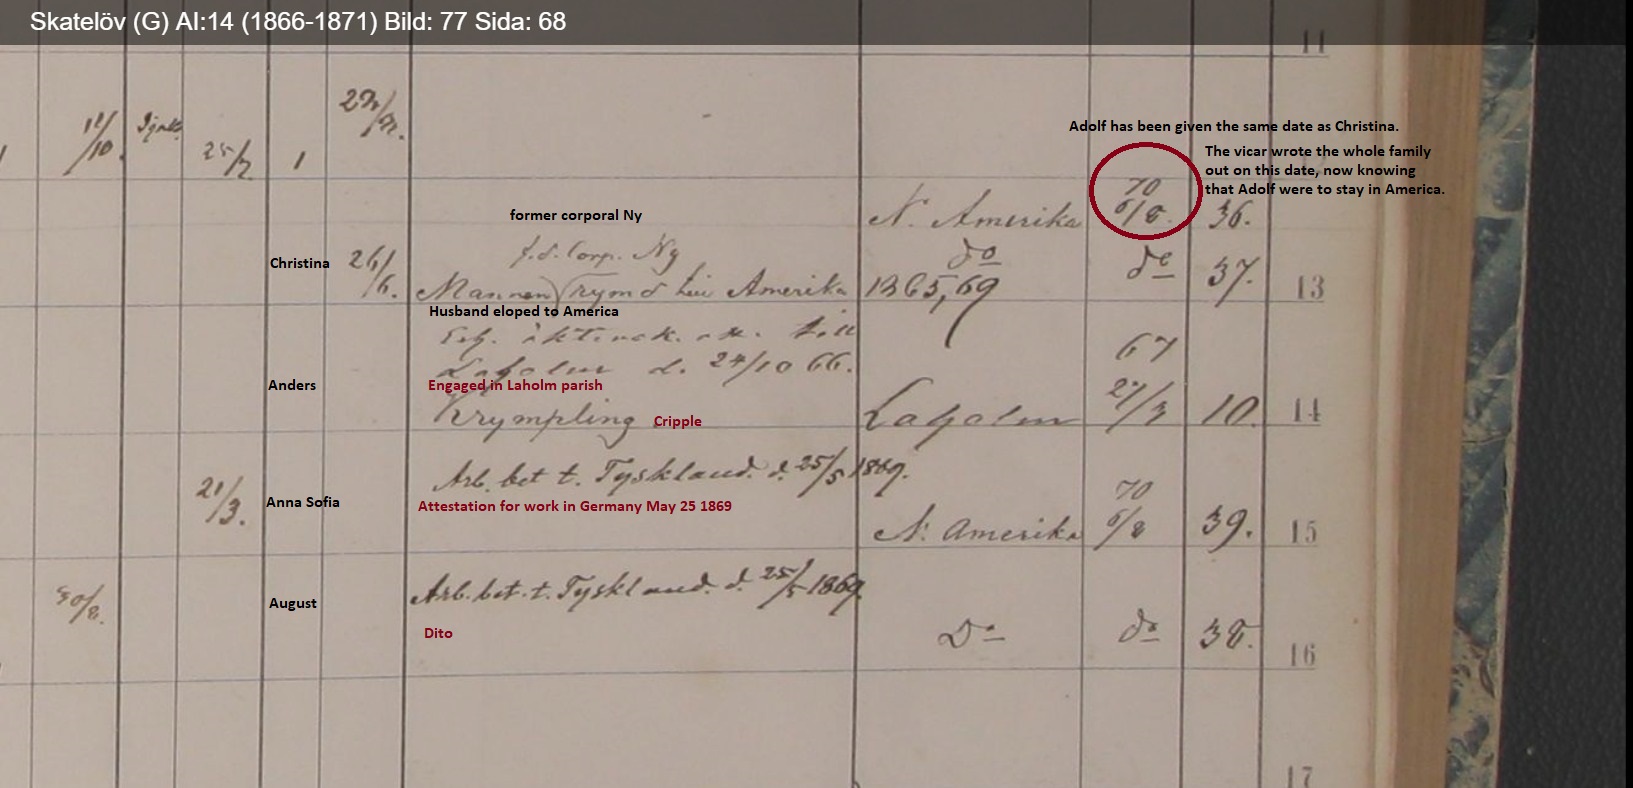 Skatelöv (G) AI:14 (1866-1871) Bild: 77 Sida: 68
11
27/12.
11/10.
25/7
1
Adolf has been given the same date as Christina.
The vicar wrote the whole family
out on this date, now knowing
that Adolf were to stay in America.
70
former corporal Ny
N. Amerika 6/8. 36.
f.d. Corp. Ny
do do 37.
Christina 26/6. Mannen rymd till Amerika 1865,69 13
Husband eloped to America
till
Laholm d. 24/10 66. 67
Anders Engaged in Laholm parish
Krympling Cripple Laholm 27/3 10. 14
Arb. bet t. Tyskland. d. 25/5 1869.
21/3. Anna Sofia Attestation for work in Germany May 25 1869 70
N. Amerika 6/8 39. 15
Arb. bet. t. Tyskland. d. 25/5 1869.
30/8. August
Dito
Do do 38. 16
17